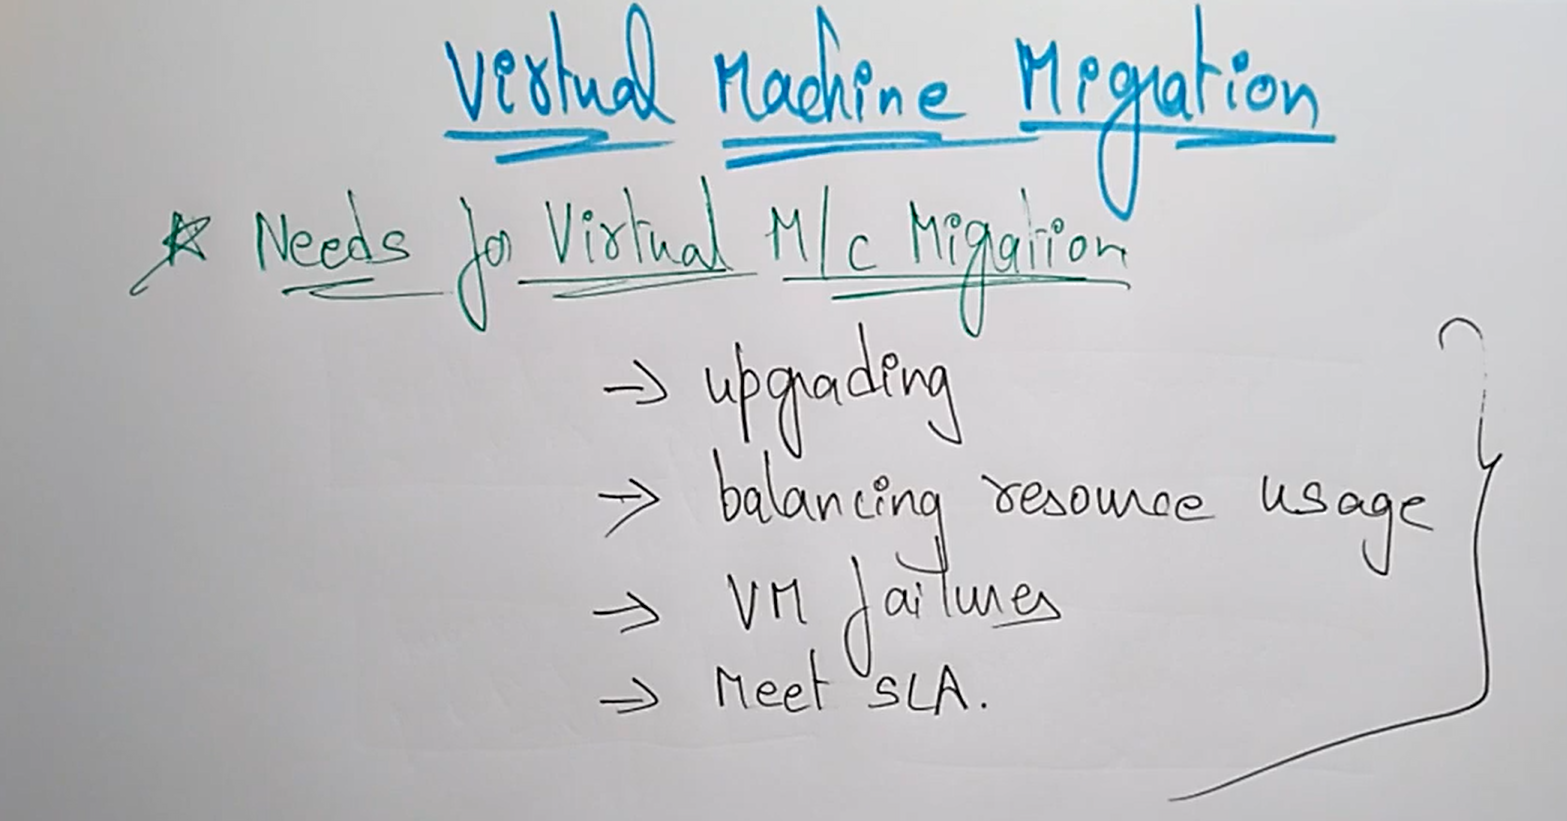 Virtual Machine Migration
* Needs for Virtual M/c Migration
→ upgrading
→ balancing resource usage
→ VM failures
→ Meet SLA.